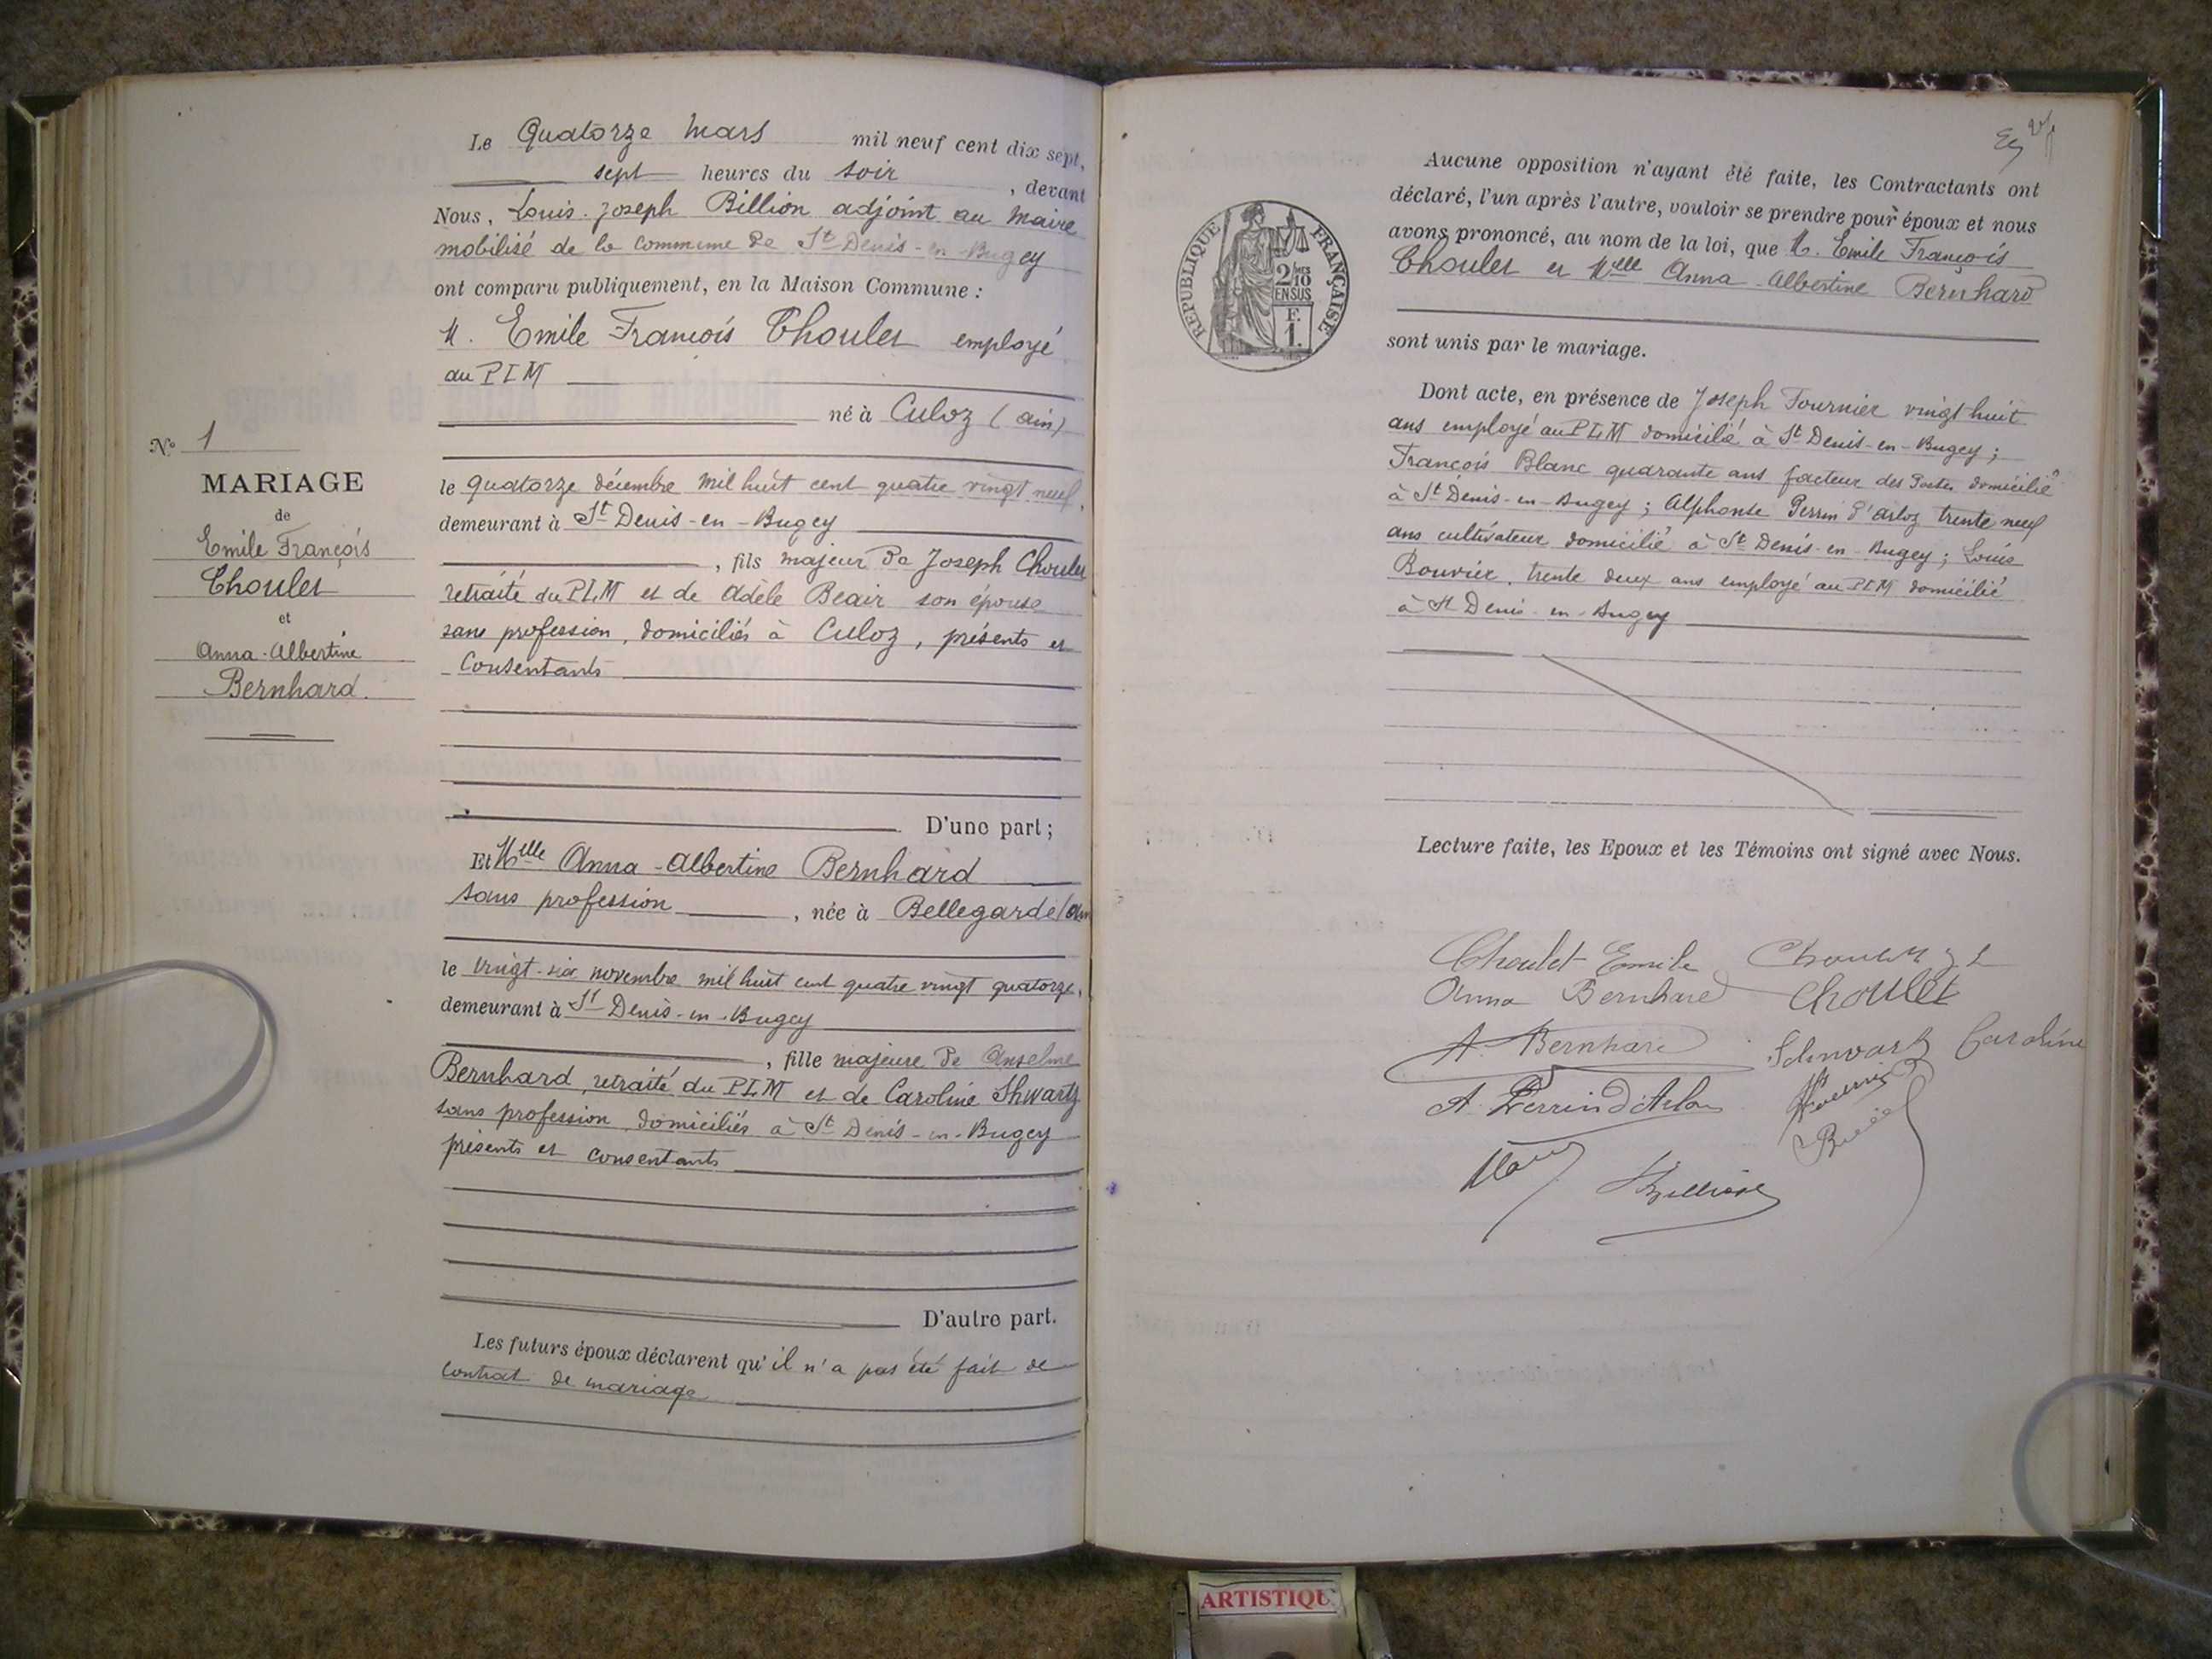 Le Quatorze Mars mil neuf cent dix sept,
sept heures du soir, devant
Nous, Louis-Joseph Billion adjoint au Maire
mobilisé de la commune de St Denis-en-Bugey
ont comparu publiquement, en la Maison Commune :
M. Emile François Choulet employé
au PLM
né à Culoz (ain)
le quatorze décembre mil huit cent quatre vingt neuf,
demeurant à St Denis-en-Bugey
, fils majeur de Joseph Choulet
retraité du PLM et de Adèle Beair son épouse
sans profession, domiciliés à Culoz, présents et
Consentants
D'une part ;
Et Mlle Anna-Albertine Bernhard
sans profession, née à Bellegarde (ain
le vingt-six novembre mil huit cent quatre vingt quatorze,
demeurant à St Denis-en-Bugey
, fille majeure de Anselme
Bernhard, retraité du PLM et de Caroline Shwartz
sans profession, domiciliés à St Denis-en-Bugey
présents et consentants
D'autre part.
Les futurs époux déclarent qu'il n'a pas été fait de
contrat de mariage
No 1
MARIAGE
de
Emile François
Choulet
et
Anna-Albertine
Bernhard.
RÉPUBLIQUE FRANÇAISE
2/10MES
EN SUS
F.
1.
Aucune opposition n'ayant été faite, les Contractants ont
déclaré, l'un après l'autre, vouloir se prendre pour époux et nous
avons prononcé, au nom de la loi, que M. Emile François
Choulet et Mlle Anna-Albertine Bernhard
sont unis par le mariage.
Dont acte, en présence de Joseph Fournier vingt huit
ans employé au PLM domicilié à St Denis-en-Bugey ;
François Blanc quarante ans facteur des Postes domicilié
à St Denis-en-Bugey ; Alphonse Perrin d'arloz trente neuf
ans cultivateur domicilié à St Denis-en-Bugey ; Louis
Bouvier, trente deux ans employé au PLM domicilié
à St Denis-en-Bugey
Lecture faite, les Epoux et les Témoins ont signé avec Nous.
Choulet Emile
Anna Bernhard Choulet
A. Bernhard Schwartz Caroline
A. Perrin d'Arloz
Billion
ARTISTIQU